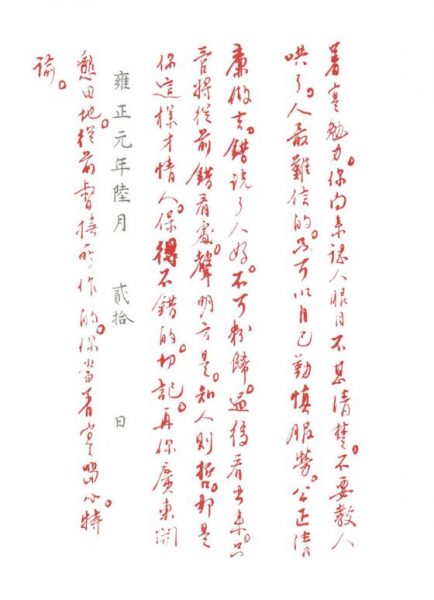 著實勉力。你向来認人眼目不甚清楚。不要教人
哄了。人最難信的。不可以自己勤慎服勞。公正清
廉做去。錯說了人好。不可粉飾。過後看出来。只
管將從前錯看處。聲明方是。知人則哲。却是
你這樣才情人。保得不錯的。切記。再你廣東開
雍正元年陸月 貳拾 日
墾田地。從前督撫所作的。你當著實留心。特
諭。